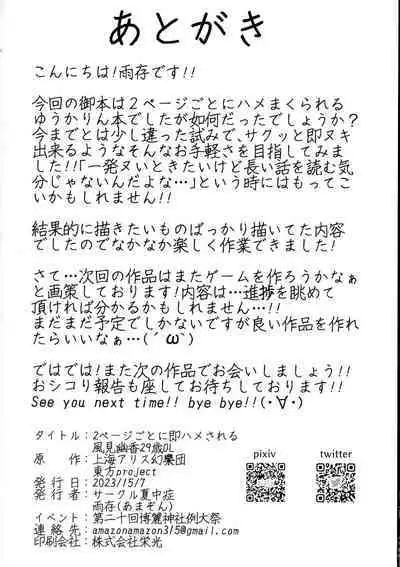 あとがき
こんにちは!雨存です!!
今回の御本は2ページごとにハメまくられる
ゆうかりん本でしたが如何だったでしょうか?
今までとは少し違った試みで、サクッと即ヌキ
出来るようなそんなお手軽さを目指してみま
した!!「一発ヌいときたいけど長い話を読む気
分じゃないんだよな…」という時にはもってこ
いかもしれません!!
結果的に描きたいものばっかり描いてた内容
でしたのでなかなか楽しく作業できました!
さて…次回の作品はまたゲームを作ろうかなぁ
と画策しております!内容は…進捗を眺めて
頂ければ分かるかもしれません…!!
まだまだ予定でしかないですが良い作品を作れ
たらいいなぁ…(´ω`)
ではでは!また次の作品でお会いしましょう!!
おシコり報告も座してお待ちしております!!
See you next time!! bye bye!!(・∀・)
タイトル:2ページごとに即ハメされる
風見幽香29歳OL
原 作:上海アリス幻樂団
東方project
発 行 日:2023/15/7
発 行:サークル夏中症
雨存(あまぞん)
イベント:第二十回博麗神社例大祭
連 絡 先:amazonamazon315@gmail.com
印刷会社:株式会社栄光
pixiv
twitter